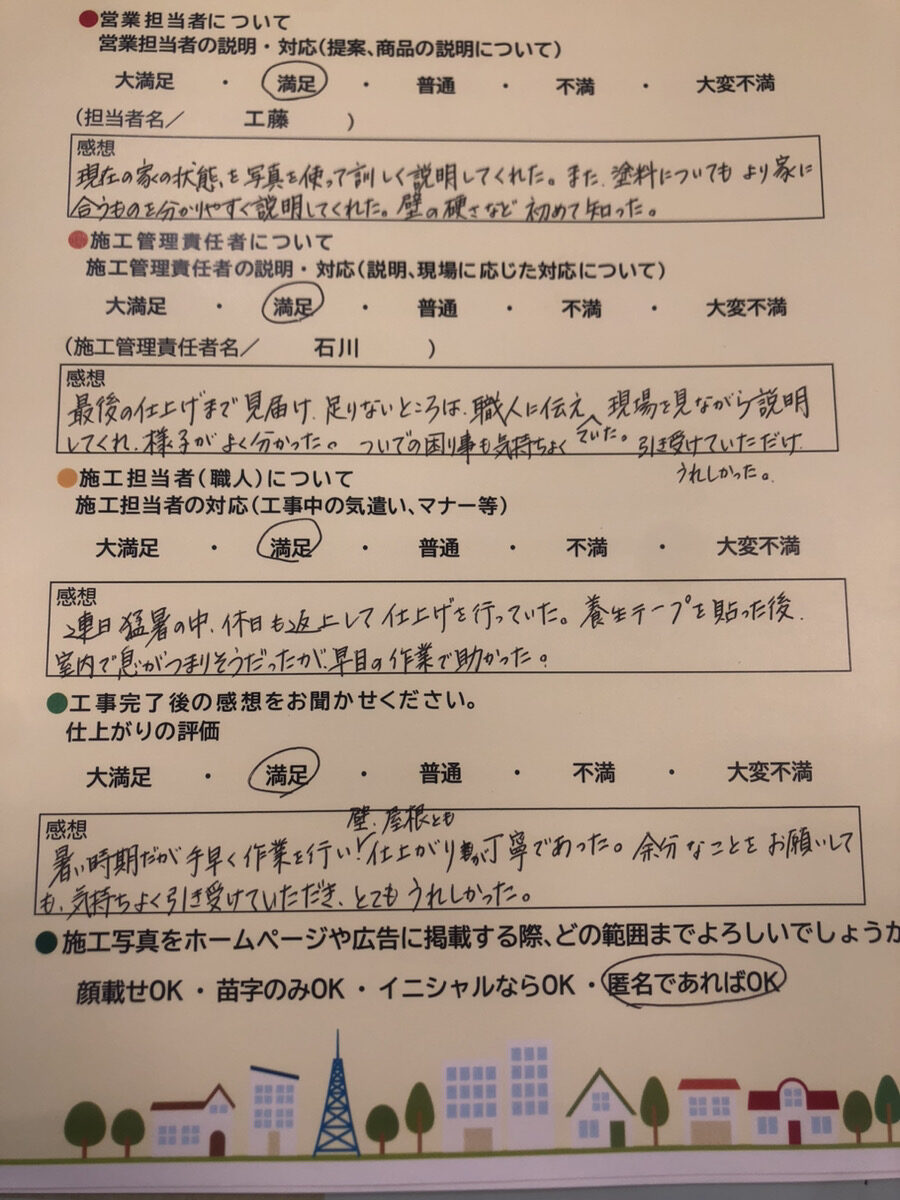 ●営業担当者について
営業担当者の説明・対応(提案、商品の説明について)
大満足 ・ 満足 ・ 普通 ・ 不満 ・ 大変不満
(担当者名/ 工藤 )
感想
現在の家の状態、を写真を使って詳しく説明してくれた。また、塗料についてもより家に
合うものを分かりやすく説明してくれた。壁の硬さなど初めて知った。
●施工管理責任者について
施工管理責任者の説明・対応(説明、現場に応じた対応について)
大満足 ・ 満足 ・ 普通 ・ 不満 ・ 大変不満
(施工管理責任者名/ 石川 )
感想
最後の仕上げまで見届け、足りないところは、職人に伝え、現場を見ながら説明
ていた。
してくれ、様子がよく分かった。ついでの困り事も気持ちよく引き受けていただけ、
うれしかった。
●施工担当者(職人)について
施工担当者の対応(工事中の気遣い、マナー等)
大満足 ・ 満足 ・ 普通 ・ 不満 ・ 大変不満
感想
連日猛暑の中、休日も返上して仕上げを行っていた。養生テープを貼った後、
室内で息がつまりそうだったが、早目の作業で助かった。
●工事完了後の感想をお聞かせください。
仕上がりの評価
大満足 ・ 満足 ・ 普通 ・ 不満 ・ 大変不満
感想
壁、屋根とも
暑い時期だが手早く作業を行い、仕上がりが丁寧であった。余分なことをお願いして
も、気持ちよく引き受けていただき、とてもうれしかった。
●施工写真をホームページや広告に掲載する際、どの範囲までよろしいでしょうか
顔載せOK ・ 苗字のみOK ・ イニシャルならOK ・ 匿名であればOK